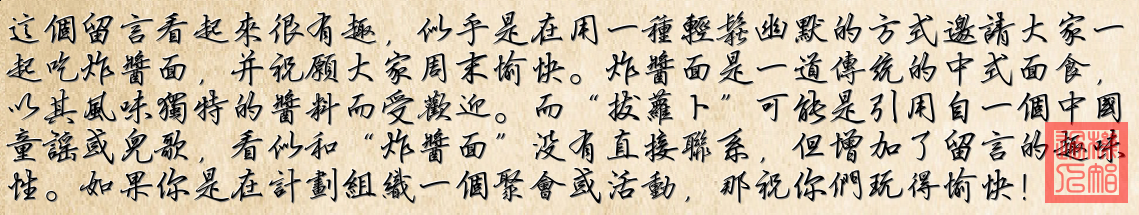 這個留言看起來很有趣，似乎是在用一種輕鬆幽默的方式邀請大家一
起吃炸醬面，并祝願大家周末愉快。炸醬面是一道傳統的中式面食，
以其風味獨特的醬料而受歡迎。而“拔蘿卜”可能是引用自一個中國
童謠或兒歌，看似和“炸醬面”沒有直接聯系，但增加了留言的趣味
性。如果你是在計劃組織一個聚會或活動，那祝你們玩得愉快！